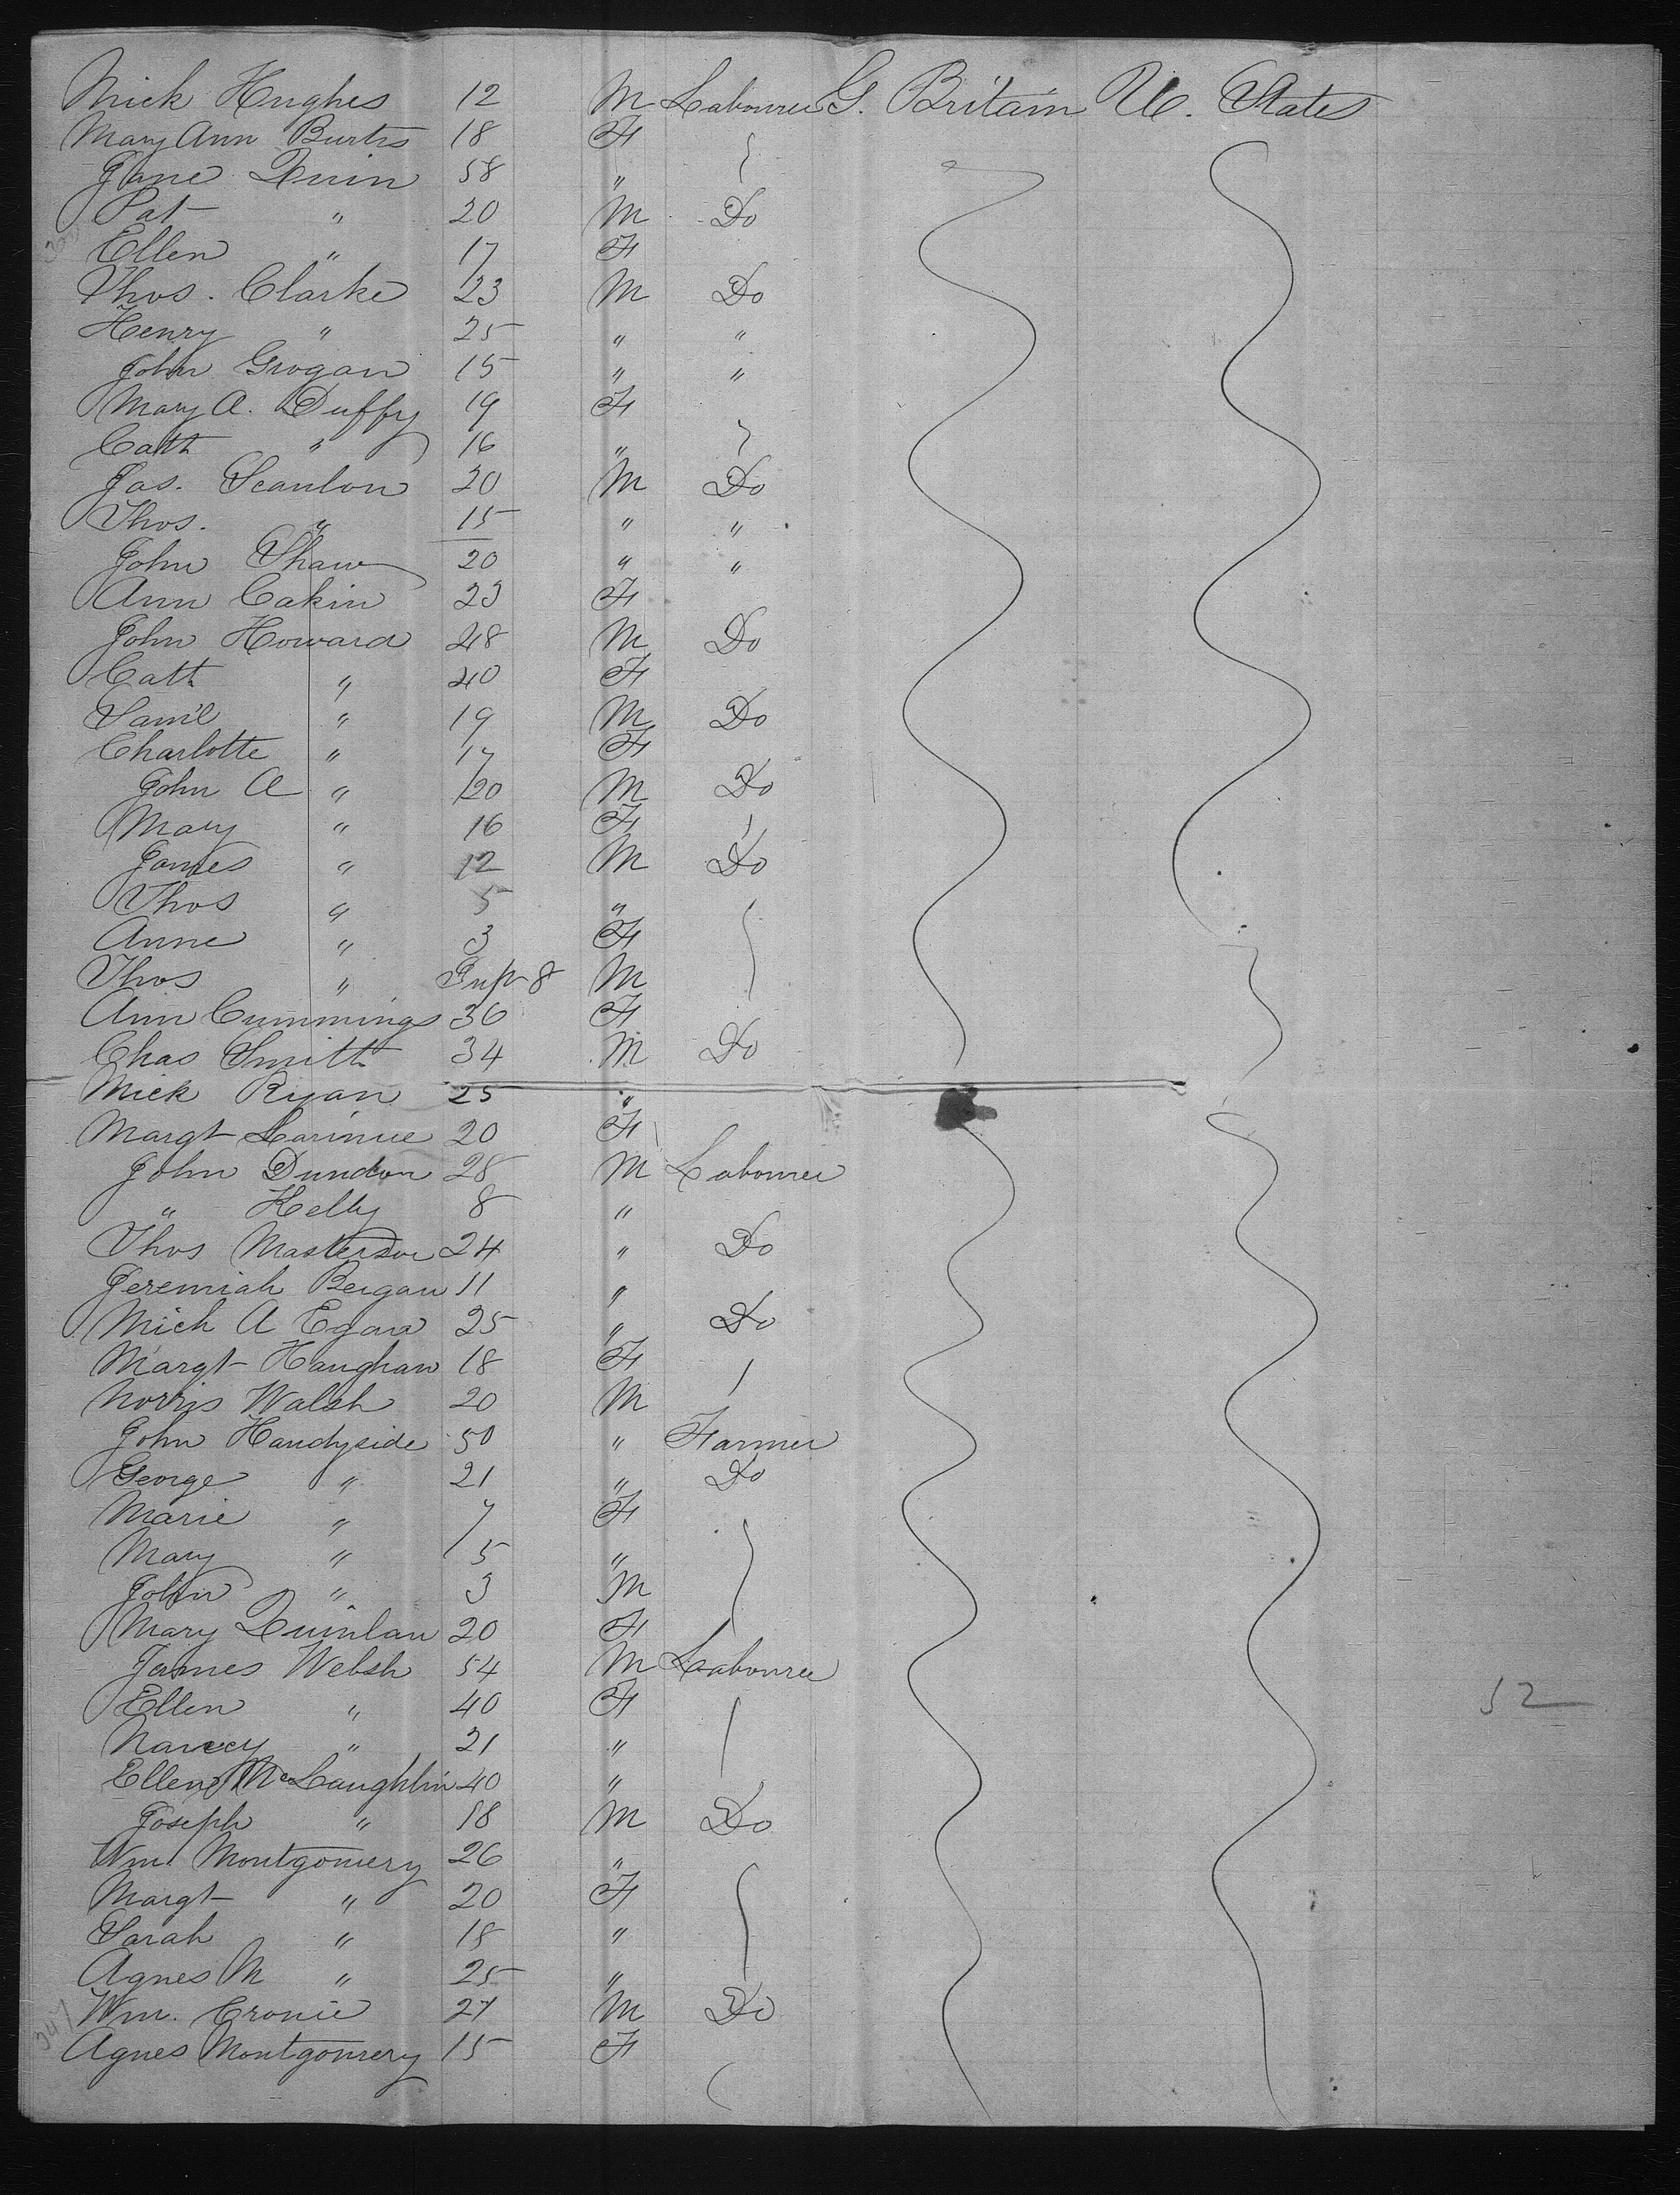 Mick Hughes 12 M Labourer G. Britain U. States
Mary Ann Burtis 18 F
Jane Quin 58 "
Pat " 20 M Do
Ellen " 17 F
Thos. Clarke 23 M Do
Henry " 25 " "
John Grogan 15 " "
Mary A. Duffy 19 F
Cath " 16 "
Jas. Scanlon 20 M Do
Thos. " 15 " "
John Shaw 20 " "
Ann Cakin 23 F
John Howard 48 M Do
Cath " 40 F
Saml " 19 M Do
Charlotte " 17 F
John A " 20 M Do
Mary " 16 F
James " 12 M Do
Thos " 5 "
Anne " 3 F
Thos " Inft 8 M
Ann Cummings 36 F
Chas Smith 34 M Do
Mick Ryan 25 "
Margt 20 F
John Dundon 28 M Labourer
" Kelly 8 "
Thos Masterson 24 " Do
Jeremiah Bergan 11 "
Mich A Egan 25 " Do
Margt Haughan 18 F
Norris Walsh 20 M
John Handyside 50 " Farmer
George " 21 " Do
Marie " 7 F
Mary " 5 "
John " 3 M
Mary Quinlan 20 F
James Welsh 54 M Labourer
Ellen " 40 F
52
Nancy " 21 "
Ellen McLaughlin 40 "
Joseph " 18 M Do
Wm Montgomery 26 "
Margt " 20 F
Sarah " 18 "
Agnes M " 25 "
Wm. Cronie 27 M Do
Agnes Montgomery 15 F